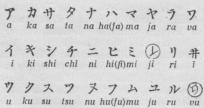 ア カ サ タ ナ ハ マ ヤ ラ ワ
a ka sa ta na ha(fa) ma ja ra va
イ キ シ チ ニ ヒ ミ リ ヰ
i ki shi chi ni hi(fi) mi ji ri i
ウ ク ス ツ ヌ フ ム ユ ル
u ku su tsu nu hu(fu) mu ju ru vu